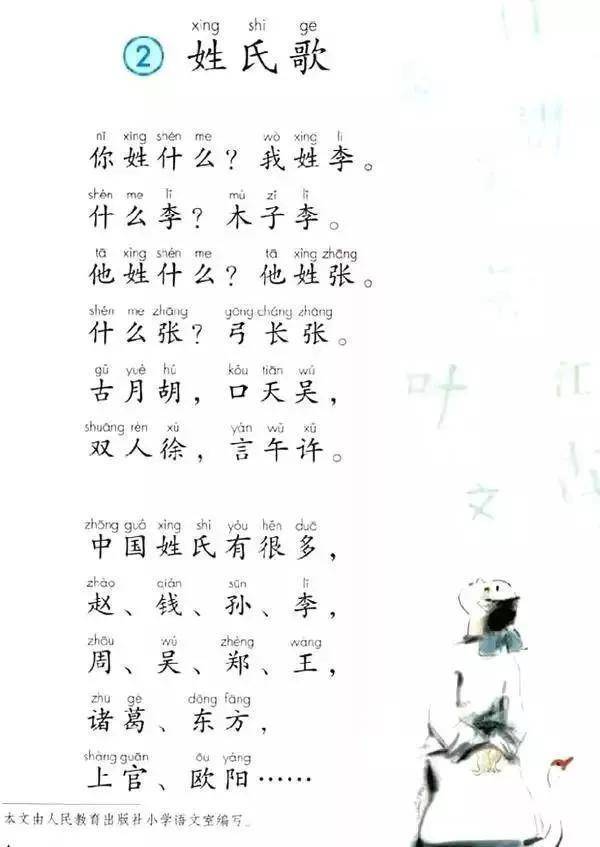 xìng shì gē
② 姓氏歌
nǐ xìng shén me wǒ xìng lǐ
你姓什么？我姓李。
shén me lǐ mù zǐ lǐ
什么李？木子李。
tā xìng shén me tā xìng zhāng
他姓什么？他姓张。
shén me zhāng gōng cháng zhāng
什么张？弓长张。
gǔ yuè hú kǒu tiān wú
古月胡，口天吴，
shuāng rén xú yán wǔ xǔ
双人徐，言午许。
zhōng guó xìng shì yǒu hěn duō
中国姓氏有很多，
zhào qián sūn lǐ
赵、钱、孙、李，
zhōu wú zhèng wáng
周、吴、郑、王，
zhū gě dōng fāng
诸葛、东方，
shàng guān ōu yáng
上官、欧阳……
本文由人民教育出版社小学语文室编写。
叶
江
文